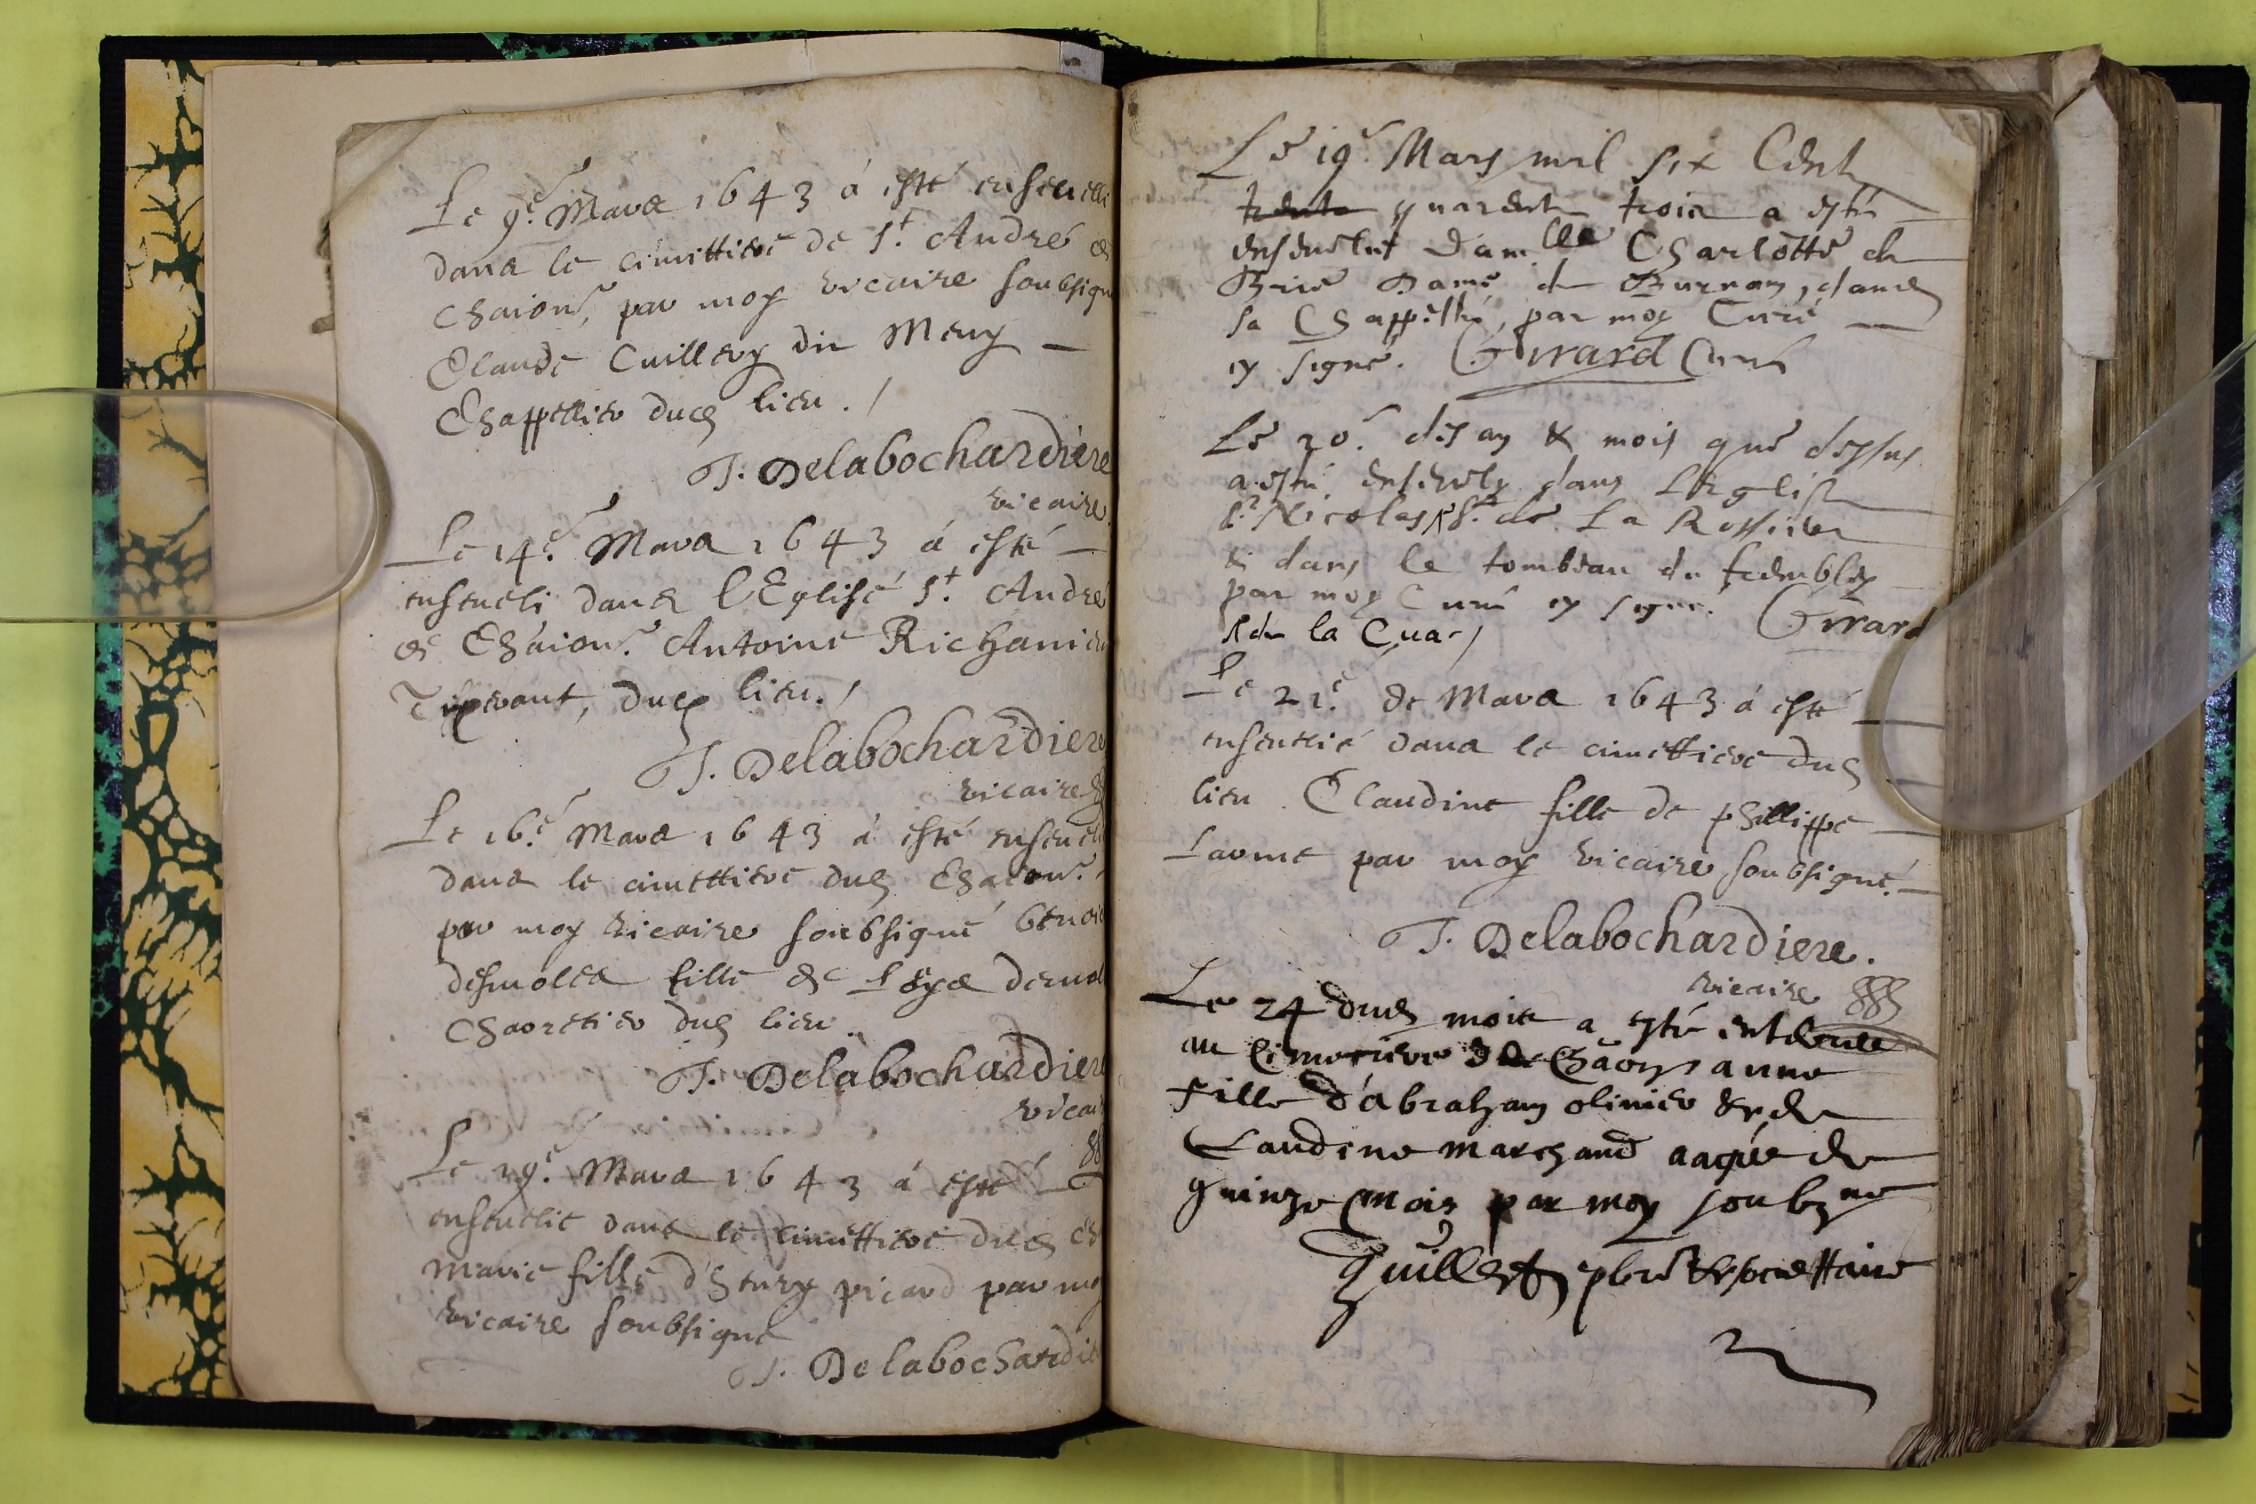 Le 9e. Mars 1643 á esté enseuelli
dans le cimittiere de St. André de
Chaion, par moy vicaire soubsigné
Claude Cuillery dit Meny
Chappellier dud lieu. /
J. Delabochardiere
vicaire
Le 14e. Mars 1643 á esté
enseueli dans l'Eglise St. André
de Chaion. Antoine Richanier
dud lieu. /
J. Delabochardiere
vicaire
Le 16e. Mars 1643 á esté enseueli
dans le cimettiere dud Chaion.
par moy vicaire soubsigné benoi
desmoles fille de
dud lieu.
J. Delabochardiere
vicai
Le 19e. Mars 1643 á esté
enseuelie dans le cimettiere dud ch
Marie fille d'henry picard par moy
vicaire soubsigné
J. Delabochardie
Le 19e. Mars mil six Cent
trente quarent trois a esté
enseuelut dam.lle Charlotte de
Brie Dame de Burnan, dans
sa Chappelle, par moy Curé
cy signé. Girard Curé
Le 20e. des an & mois que dessus
a esté enseuely dans L'Eglise
Sr Nicolas Sr. de La
& dans le tombeau de
par moy Curé cy signé. Girard
de la Cua /
Le 21e. de Mars 1643 á esté
enseuelié dans le cimettiere dud
lieu. Claudine fille de phillippe
Larme par moy vicaire soubsigné.
J. Delabochardiere.
vicaire
Le 24 dud mois a esté
au Cimetiere de Chaon anne
fille d'abraham oliuier & de
Laudine marchand aagée de
quinze mois par moy soubzne
Quillery pbre & societtaire